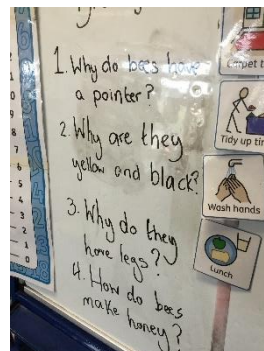 1. Why do bees have
a pointer?
2. Why are they
yellow and black?
3. Why do they
have legs?
4. How do bees
make honey?
Carpet t
Tidy up ti
Wash hands
Lunch
9
8
7
6
5
4
3
2
1
0